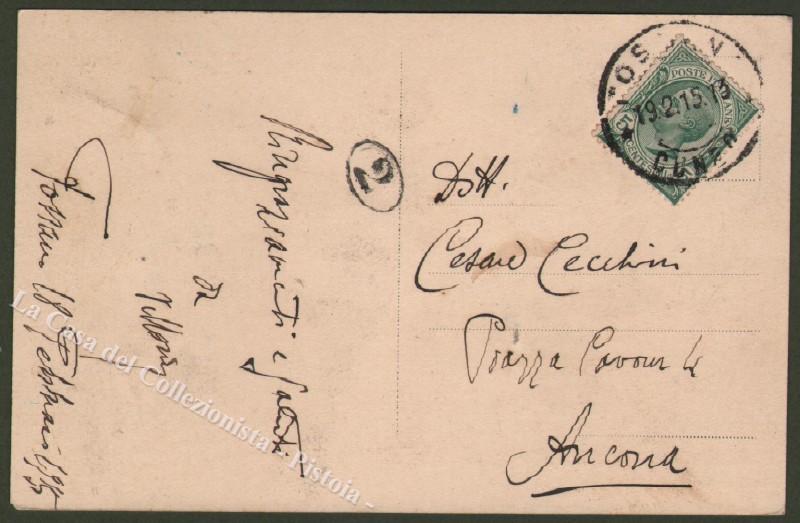 Fossano 18 Febbraio 1915
Ringraziamenti e Saluti
da
2
19.2.15
CUNEO
POSTE ITALIANE
CENTESIMI
Dott.
Cesare Cecchini
Piazza Cavour 4
Ancona
La Casa del Collezionista - Pistoia -